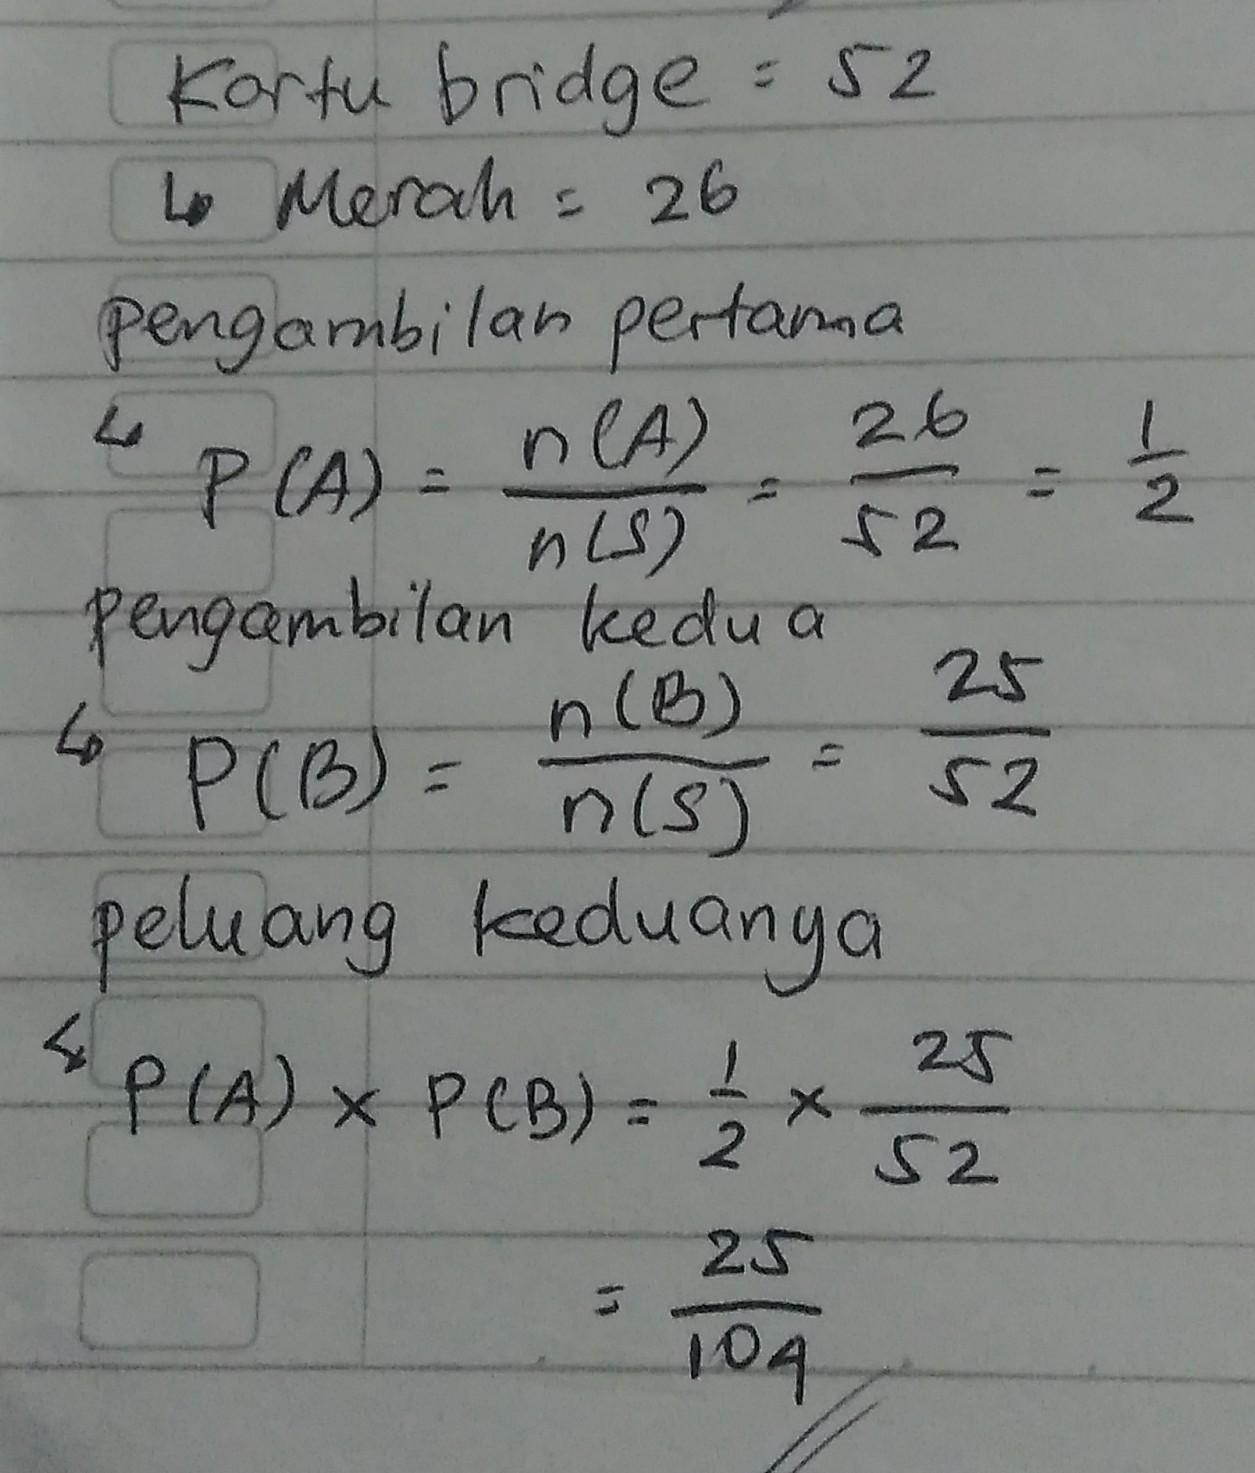 Kartu bridge = 52
↳ Merah = 26
pengambilan pertama
↳ P(A) = n(A)/n(S) = 26/52 = 1/2
pengambilan kedua
↳ P(B) = n(B)/n(S) = 25/52
peluang keduanya
↳ P(A) × P(B) = 1/2 × 25/52
= 25/104